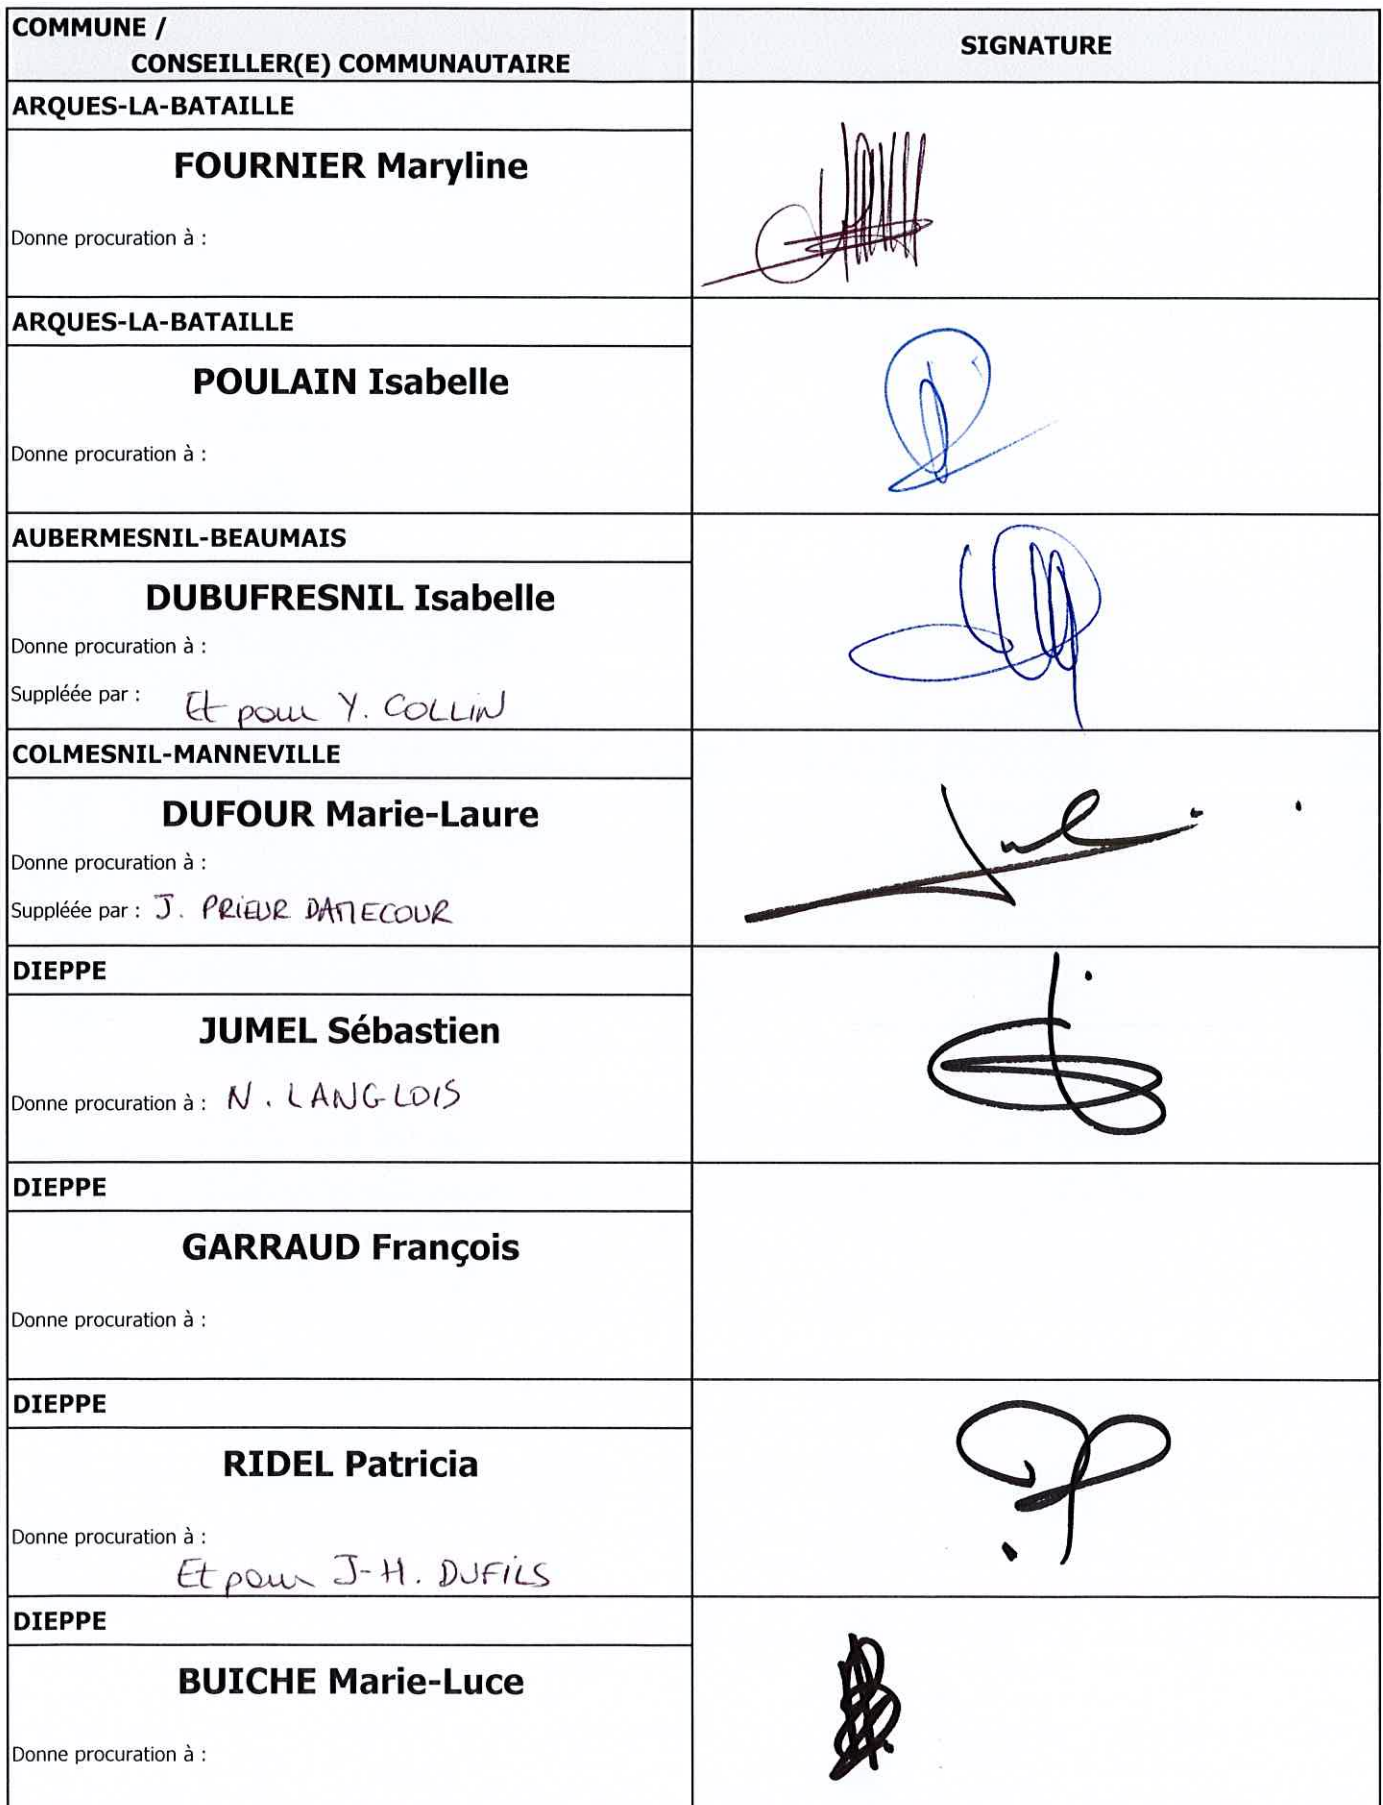 COMMUNE /
CONSEILLER(E) COMMUNAUTAIRE
SIGNATURE
ARQUES-LA-BATAILLE
FOURNIER Maryline
Donne procuration à :
ARQUES-LA-BATAILLE
POULAIN Isabelle
Donne procuration à :
AUBERMESNIL-BEAUMAIS
DUBUFRESNIL Isabelle
Donne procuration à :
Suppléée par : Et pour Y. COLLIN
COLMESNIL-MANNEVILLE
DUFOUR Marie-Laure
Donne procuration à :
Suppléée par : J. PRIEUR DAMECOUR
DIEPPE
JUMEL Sébastien
Donne procuration à : N. LANGLOIS
DIEPPE
GARRAUD François
Donne procuration à :
DIEPPE
RIDEL Patricia
Donne procuration à :
Et pour J-H. DUFILS
DIEPPE
BUICHE Marie-Luce
Donne procuration à :